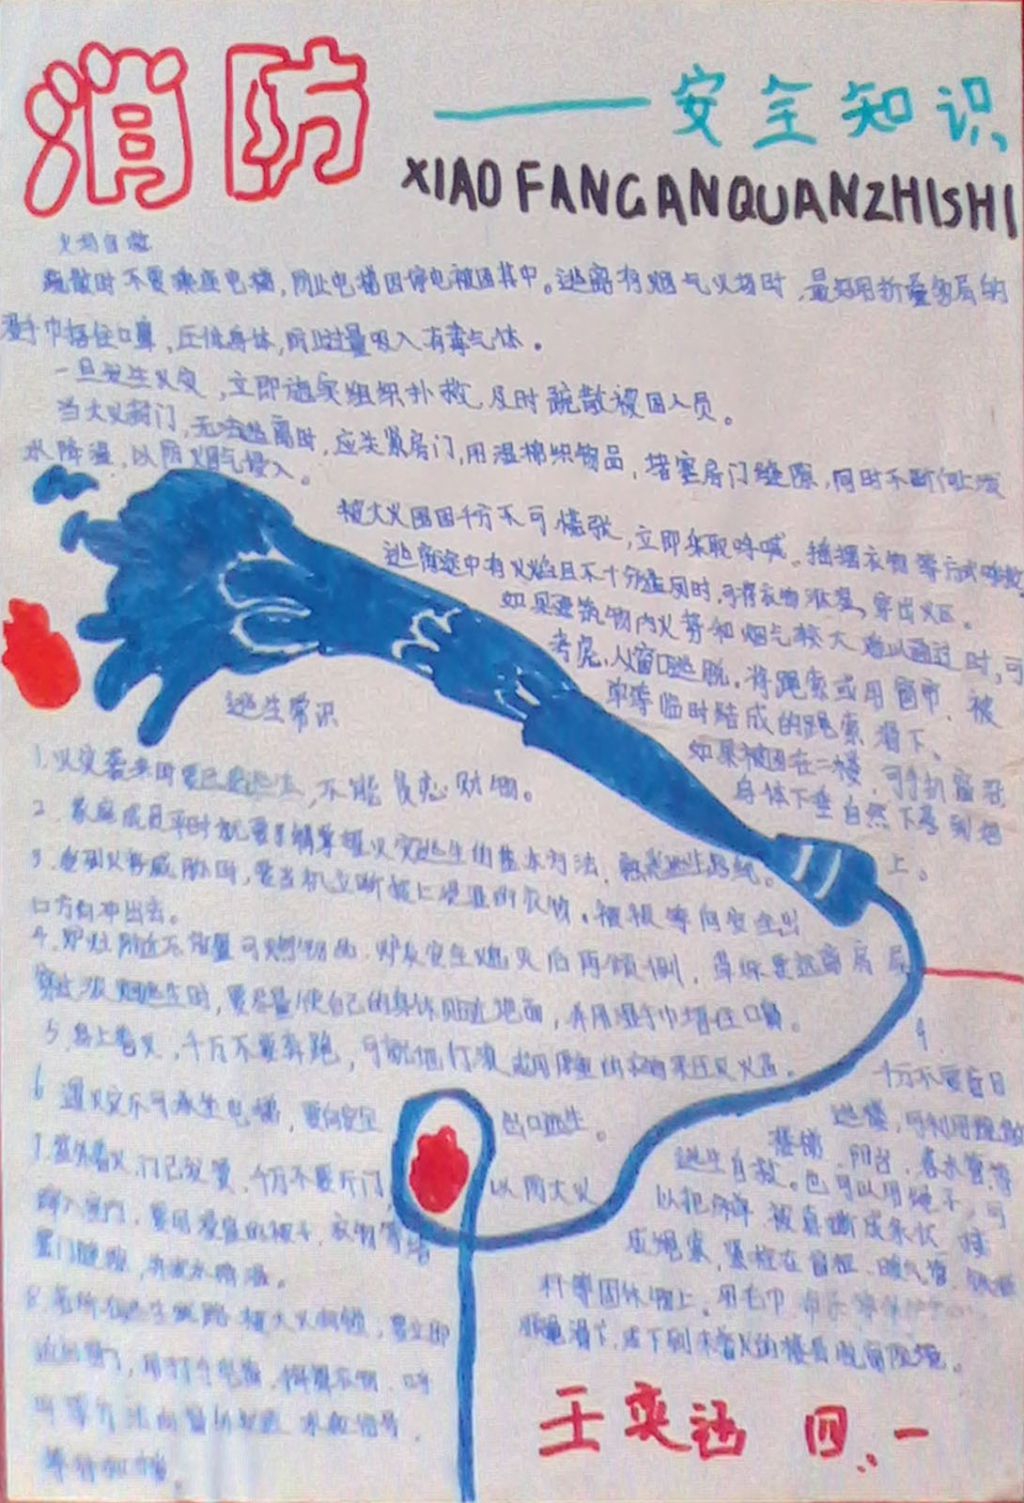 消防
——安全知识
XIAO FANGANQUANZHISHI
火场自救
疏散时不要乘座电梯,防止电梯因停电被困其中。逃离有烟气火场时,最好用折叠多层的
湿手巾捂住口鼻,压低身体,防止过量吸入有毒气体。
一旦发生火灾,立即施实组织扑救,及时疏散被困人员。
当大火封门,无法逃离时,应关紧房门,用湿棉织物品,堵塞房门缝隙,同时不断向上泼
水降温,以防烟气侵入。
被大火围困千万不可慌张,立即采取呼喊、摇摆衣物等方式呼救
逃离途中有火焰且不十分 时,可将衣物 ,穿出火区。
如果建筑物内火势和烟气较大难以通过时,可
考虑,从窗口逃脱。将绳索或用窗帘、被
单等临时结成的绳索滑下、
如果被困在二楼,可手扒窗
身体下垂自然下 到地
上。
逃生常识
1.火灾袭来时要迅速逃生,不能贪恋财物。
2.家庭成员平时就要了解掌握火灾逃生的基本方法,熟悉逃生路线。
3.受到火势威胁时,要当机立断披上浸湿的衣物、被褥等向安全出
口方向冲出去。
4.炉灶附近不放置可燃物品,炉灰完全熄灭后再倾倒,草垛要远离房屋
穿过浓烟逃生时,要尽量使自己的身体贴近地面,并用湿手巾捂住口鼻。
5.身上着火,千万不要奔跑,可就地打滚或用厚重的衣物来压灭火苗。
6 遇火灾不可乘坐电梯,要向安全出口逃生。
7.室外着火,门已发烫,千万不要开门以防大火
窜入室内,要用浸湿的被子、衣物等堵
塞门缝隙,并泼水降温。
8.若所有逃生线路被大火封锁,要立即
退回室内,用打手电筒、挥舞衣物、呼
叫等方法向窗外发送求救信号,
等待救援。
9.
千万不要盲目
跳楼,可利用疏散
楼梯、阳台、落水管等
逃生自救。也可以用绳子,可
以把床单、被套撕成条状 连
成绳索,紧栓在窗框、暖气管、铁栏
杆等固体物上,用毛巾
顺绳滑下,或下到未着火的楼层脱离险境。
王奕涵 四.一